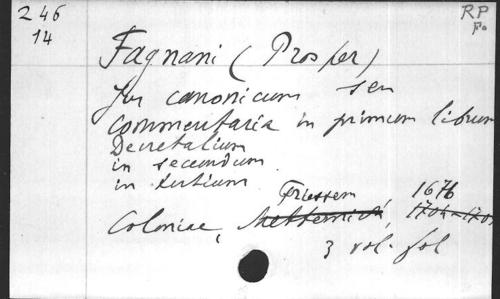 246
14
RP
Fo
Fagnani (Prosper)
Jus canonicum seu
Commentaria in primum librum
Decretalium
in secundum
in tertium
Friessem 1676
Coloniae, Metternich, 1704-1705
3 vol. fol